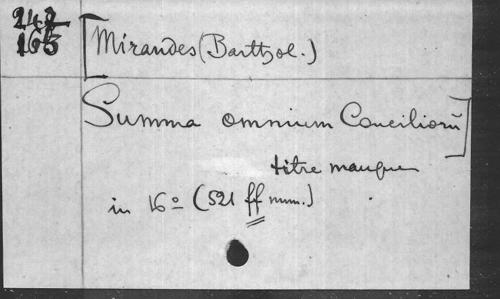 242
165
[Mirandes (Barthol.)
Summa omnium Conciliorū]
titre manque
in 16º (521 ff num.)